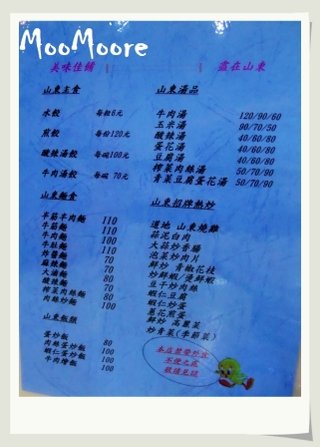 MooMoore
美味佳餚 盡在山東
山東主食
水餃 每粒6元
煎餃 每份120元
酸辣湯餃 每碗100元
牛肉湯餃 每碗 70元
山東麵食
半筋半肉麵 110
牛筋麵 110
牛肉麵 100
牛肚麵 110
炸醬麵 70
麻辣麵 70
大滷麵 80
酸辣麵 70
榨菜肉絲麵 80
肉絲炒麵 100
山東飯類
蛋炒飯 80
肉絲蛋炒飯 100
蝦仁蛋炒飯 100
牛肉燴飯 100
山東湯品
牛肉湯 120/90/60
玉米湯 90/70/50
酸辣湯 40/60/80
蛋花湯 40/60/80
豆腐湯 40/60/80
榨菜肉絲湯 50/70/90
青菜豆腐蛋花湯 50/70/90
山東招牌熱炒
道地 山東燒雞
蒜泥白肉
大蒜炒香腸
泡菜炒肉片
鮮炒 青椒花枝
炒鮮蝦/溪鮮蝦
豆干炒肉絲
蝦仁豆腐
蝦仁炒蛋
蔥花煎蛋
鮮炒 高麗菜
炒青菜(季節菜)
本店禁帶外食
不便之處
敬請見諒